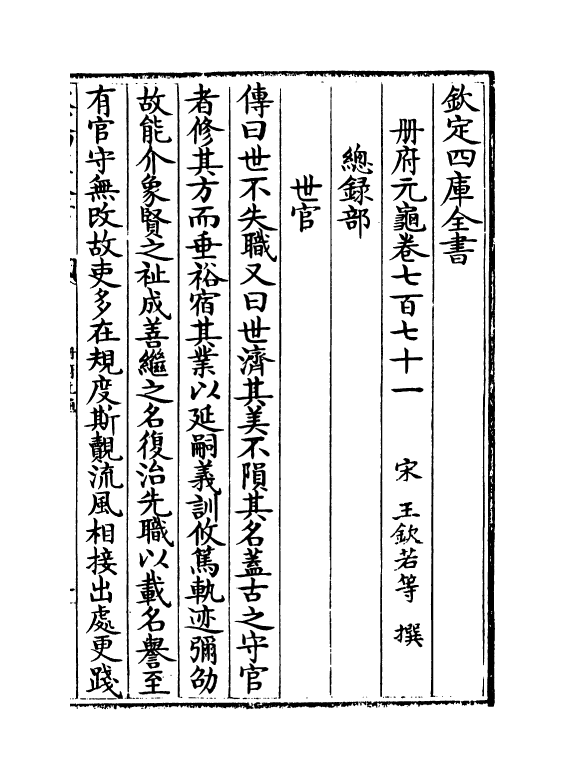 欽定四庫全書
册府元龜卷七百七十一　宋 王欽若等 撰
總錄部
世官
傳曰世不失職又曰世濟其美不隕其名蓋古之守官
者修其方而垂裕宿其業以延嗣義訓攸篤軌迹彌劭
故能介象賢之祉成善繼之名復治先職以載名譽至
有官守無改故吏多在規度斯覿流風相接出處更踐